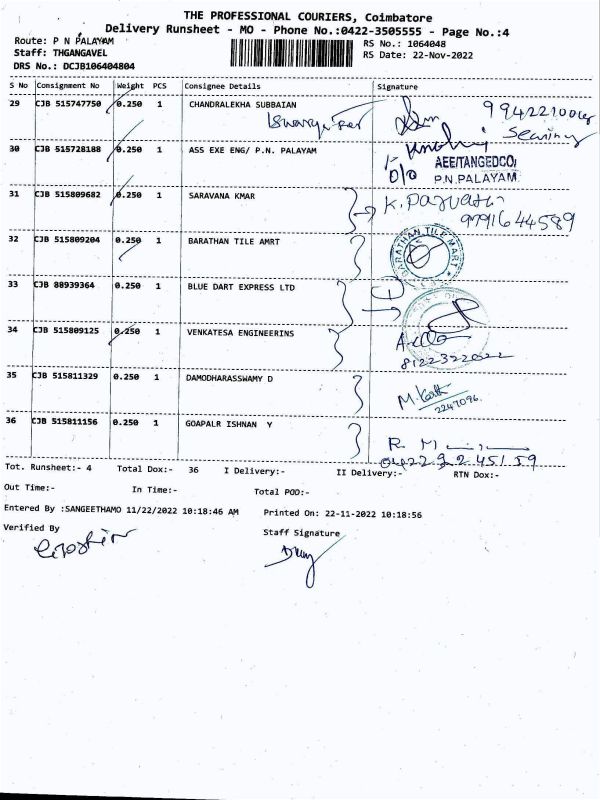 THE PROFESSIONAL COURIERS, Coimbatore
Delivery Runsheet - MO - Phone No.:0422-3505555 - Page No.:4
Route: P N PALAYAM
Staff: THGANGAVEL
DRS No.: DCJB106404804
RS No.: 1064048
RS Date: 22-Nov-2022
S No Consignment No Weight PCS Consignee Details Signature
29 CJB 515747750 0.250 1 CHANDRALEKHA SUBBAIAN
30 CJB 515728188 0.250 1 ASS EXE ENG/ P.N. PALAYAM
AEE/TANGEDCO/
P.N.PALAYAM
31 CJB 515809682 0.250 1 SARAVANA KMAR K. Parvathi
9791644589
32 CJB 515809204 0.250 1 BARATHAN TILE AMRT
BARATHAN TILE MART
33 CJB 88939364 0.250 1 BLUE DART EXPRESS LTD
34 CJB 515809125 0.250 1 VENKATESA ENGINEERINS
8122322022
35 CJB 515811329 0.250 1 DAMODHARASSWAMY D
2247096
36 CJB 515811156 0.250 1 GOAPALR ISHNAN Y
0422 2245159
Tot. Runsheet:- 4 Total Dox:- 36 I Delivery:- II Delivery:- RTN Dox:-
Out Time:- In Time:- Total POD:-
Entered By :SANGEETHAMO 11/22/2022 10:18:46 AM Printed On: 22-11-2022 10:18:56
Verified By Staff Signature